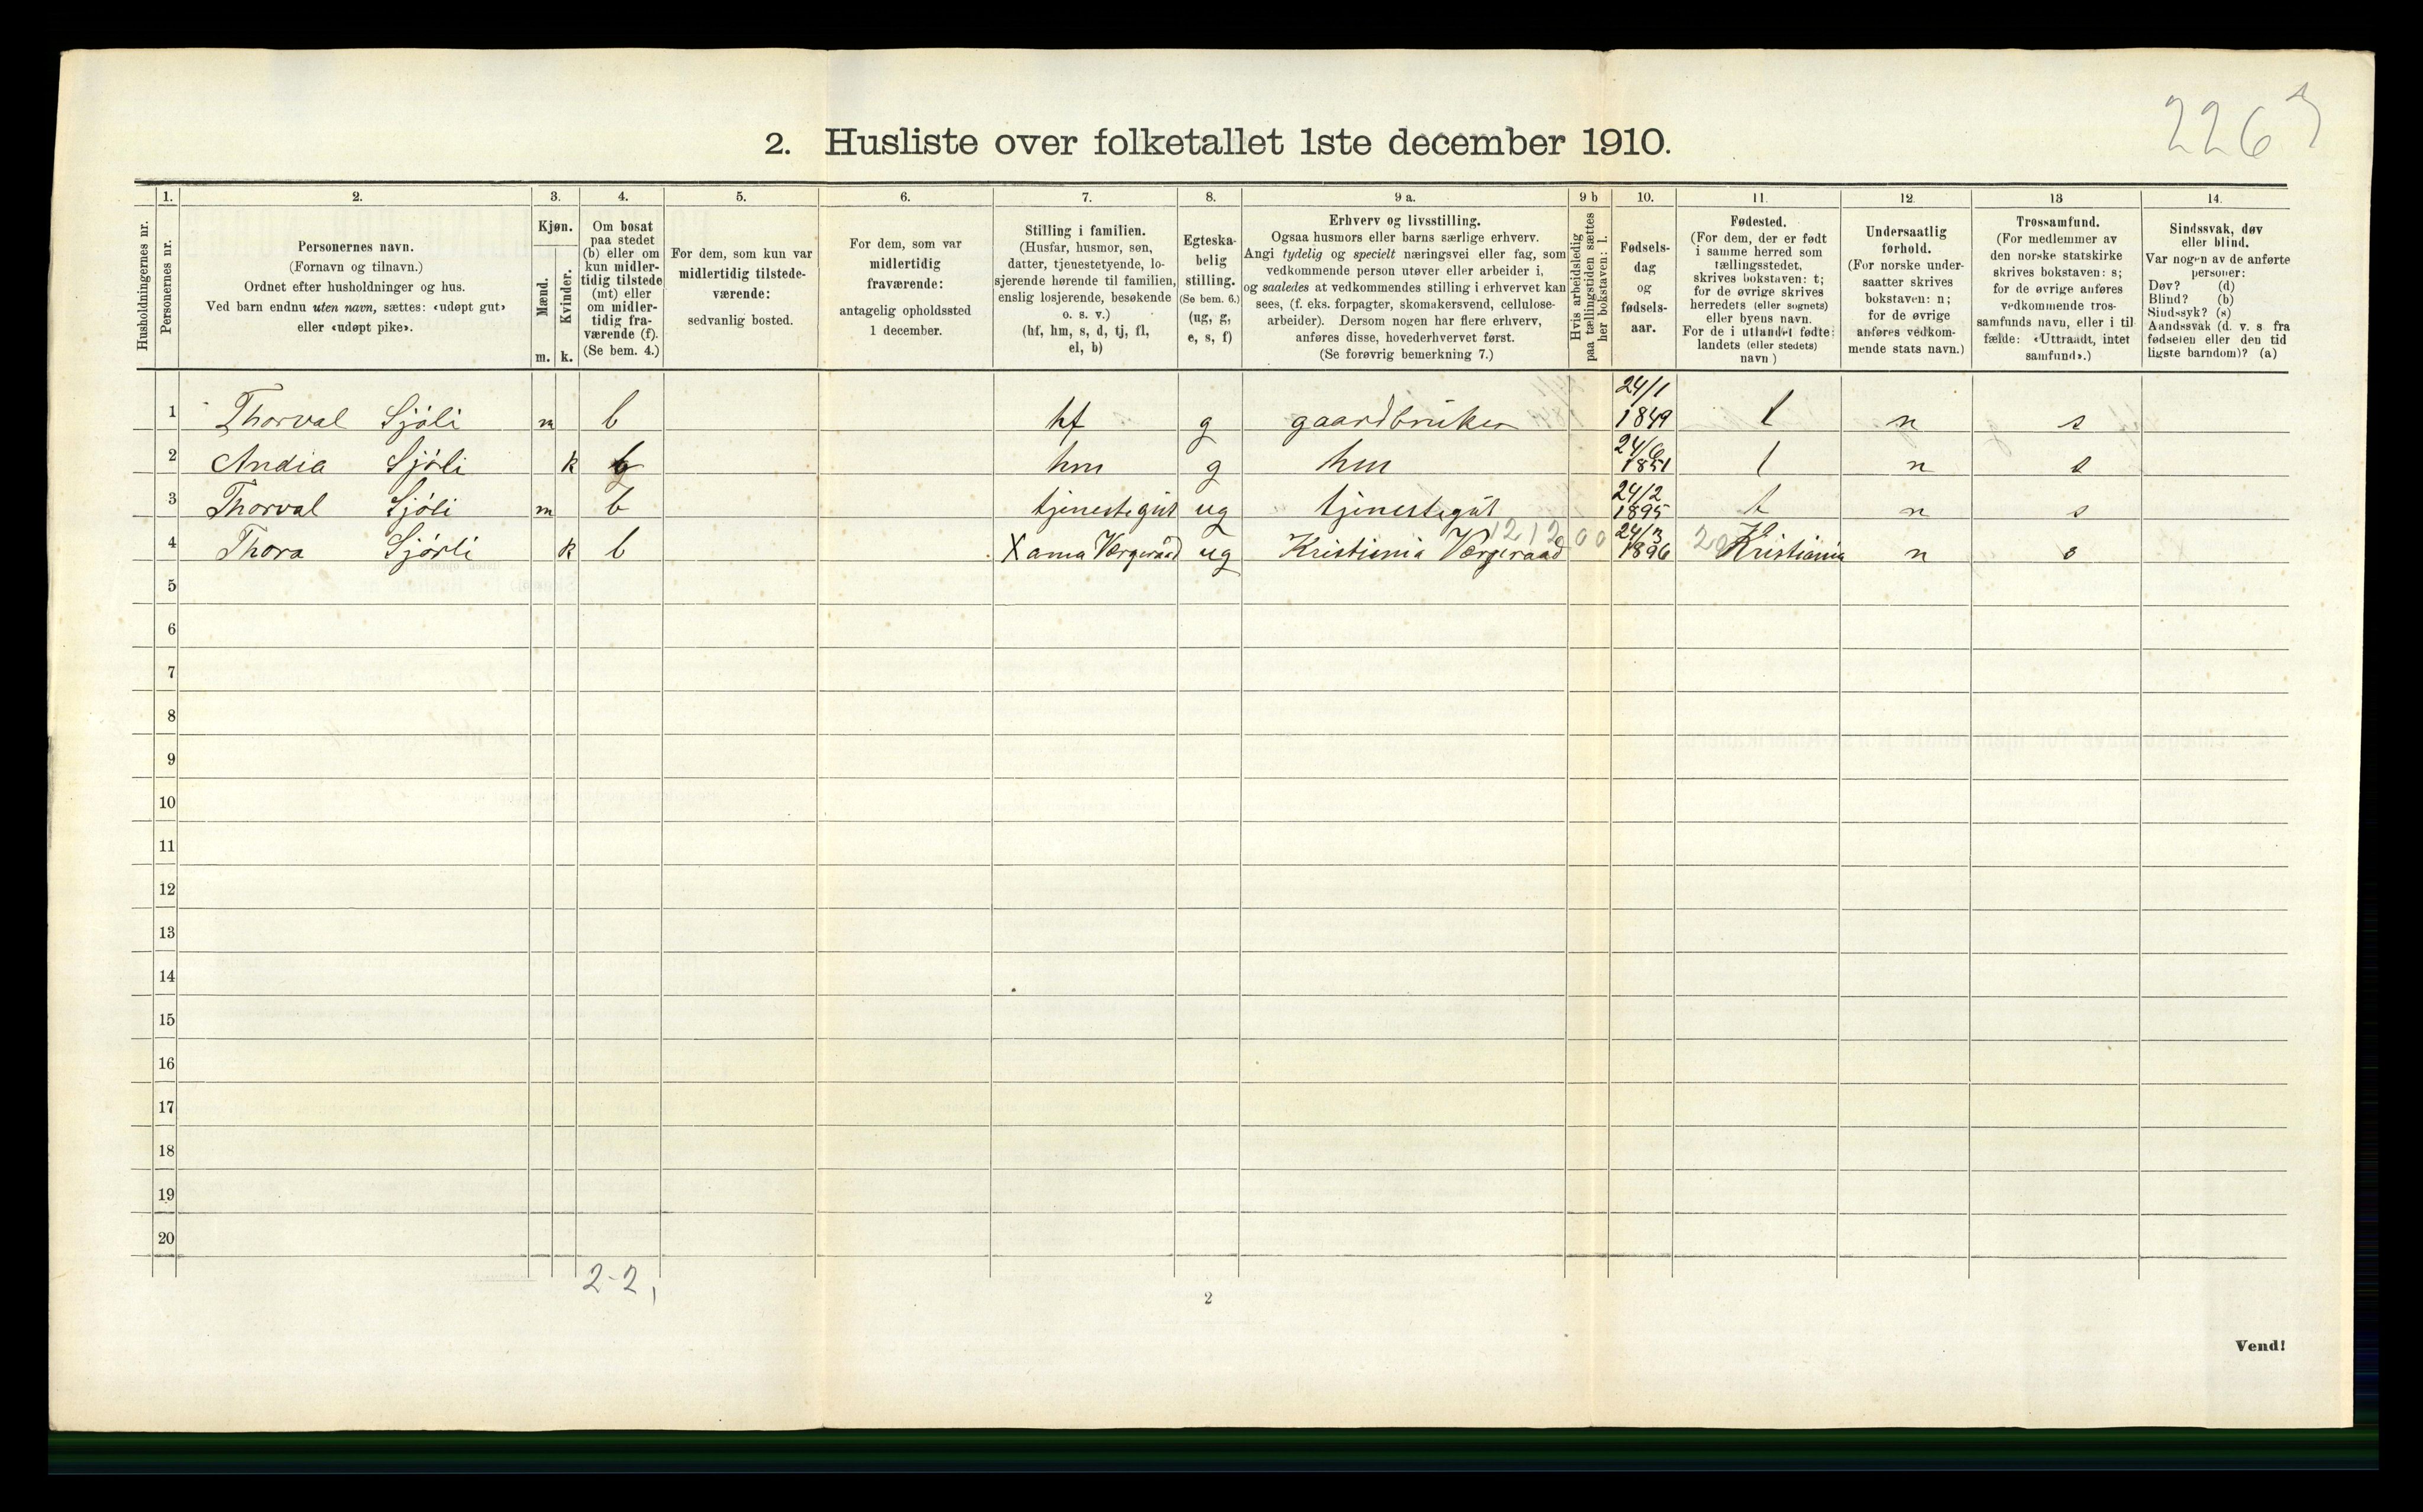 2263
2. Husliste over folketallet 1ste december 1910.
Husholdningernes nr.
1.
Personernes nr.
2.
Personernes navn.
(Fornavn og tilnavn.)
Ordnet efter husholdninger og hus.
Ved barn endnu uten navn, sættes: «udøpt gut»
eller «udøpt pike».
3.
Kjøn.
Mænd.
Kvinder.
m. k.
4.
Om bosat
paa stedet
(b) eller om
kun midler-
tidig tilstede
(mt) eller
om midler-
tidig fra-
værende (f).
(Se bem. 4.)
5.
For dem, som kun var
midlertidig tilstede-
værende:
sedvanlig bosted.
6.
For dem, som var
midlertidig
fraværende:
antagelig opholdssted
1 december.
7.
Stilling i familien.
(Husfar, husmor, søn,
datter, tjenestetyende, lo-
sjerende hørende til familien,
enslig losjerende, besøkende
o. s. v.)
(hf, hm, s, d, tj, fl,
el, b)
8.
Egteska-
belig
stilling.
(Se bem. 6.)
(ug, g,
e, s, f)
9 a.
Erhverv og livsstilling.
Ogsaa husmors eller barns særlige erhverv.
Angi tydelig og specielt næringsvei eller fag, som
vedkommende person utøver eller arbeider i,
og saaledes at vedkommendes stilling i erhvervet kan
sees, (f. eks. forpagter, skomakersvend, cellulose-
arbeider). Dersom nogen har flere erhverv,
anføres disse, hovederhvervet først.
(Se forøvrig bemerkning 7.)
9 b
Hvis arbeidsledig
paa tællingstiden sættes
her bokstaven: l.
10.
Fødsels-
dag
og
fødsels-
aar.
11.
Fødested.
(For dem, der er født
i samme herred som
tællingsstedet,
skrives bokstaven: t;
for de øvrige skrives
herredets (eller sognets)
eller byens navn.
For de i utlandet fødte:
landets (eller stedets)
navn )
12.
Undersaatlig
forhold.
(For norske under-
saatter skrives
bokstaven: n;
for de øvrige
anføres vedkom-
mende stats navn.)
13
Trossamfund.
(For medlemmer av
den norske statskirke
skrives bokstaven: s;
for de øvrige anføres
vedkommende tros-
samfunds navn, eller i til
fælde: «Uttraadt, intet
samfund».)
14.
Sindssvak, døv
eller blind.
Var nogen av de anførte
personer:
Døv? (d)
Blind? (b)
Sindssyk? (s)
Aandssvak (d. v. s. fra
fødselen eller den tid
ligste barndom)? (a)
1 Thorval Sjöli m b hf g gaardbruker 24/1 1849 t n s
2 Andia Sjöli k b hm g hm 24/6 1851 t n s
3 Thorval Sjöli m b tjenestegut ug tjenestegut 24/2 1895 t n s
4 Thora Sjörli k b X ama Værgeraad ug Kristiania Værgeraad 24/3 1896 Kristiania n s
5
6
7
8
9
10
11
12
13
14
15
16
17
18
19
20
2-2
2
Vend!